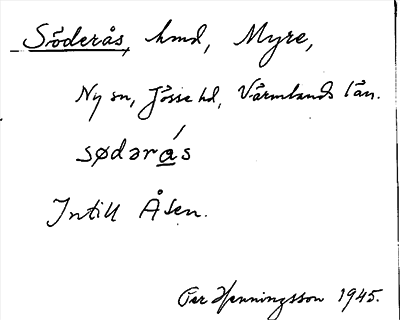 Söderås, hmd, Myre,
Ny sn, Jösse hd, Värmlands län.
sødərás
Intill Åsen.
Per Henningsson 1945.